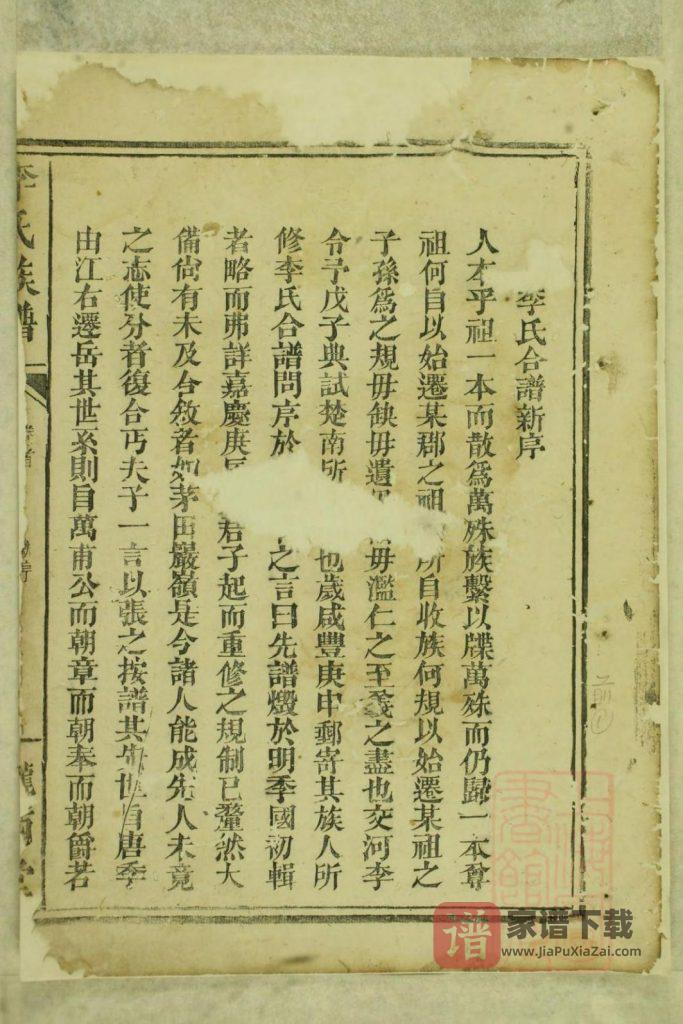 李氏合譜新序
人本乎祖一本而散爲萬殊族繫以牒萬殊而仍歸一本尊
祖何自以始遷某郡之祖所自收族何規以始遷某祖之
子孫爲之規毋缺毋遺毋濫仁之至義之盡也交河李
令予戊子典試楚南所也歲咸豐庚申郵寄其族人所
修李氏合譜問序於之言曰先譜燬於明季國初輯
者略而弗詳嘉慶庚君子起而重修之規制已釐然大
備尚有未及合敘者如茅田巖嶺是今諸人能成先人未竟
之志使分者復合丐夫子一言以張之按譜其先世自唐季
由江右遷岳其世系則自萬甫公而朝章而朝奉而朝爵若
李氏族譜
谱
家谱下载
www.JiaPuXiaZai.com